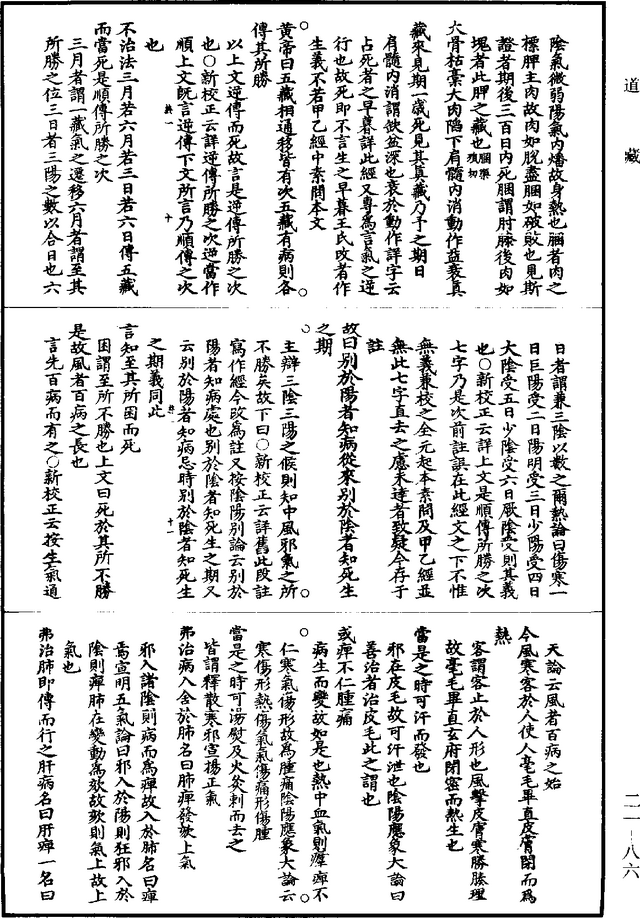 道藏
陰氣微弱陽氣內燔故身熱也䐃者肉之
標脾主肉故肉如脫盡䐃如破敗也見斯
證者期後三百日內死䐃謂肘膝後肉如
塊者此脾之藏也
大骨枯槀大肉陷下肩髓內消動作益衰真
藏來見期一歲死見其真藏乃予之期日
肩髓內消謂缺盆深也衰於動作詳字云
占死者之早暮詳此經又專為言氣之逆
行也故死即不言生之早暮王氏改者作
生義不若甲乙經中素問本文
黃帝曰五藏相通移皆有次五藏有病則各
傳其所勝
以上文逆傳而死故言是逆傳所勝之次
也○新校正云詳逆傳所勝之次逆當作
順上文既言逆傳下文所言乃順傳之次
也
不治法三月若六月若三日若六日傳五藏
而當死是順傳所勝之次
三月者謂一藏氣之遷移六月者謂至其
所勝之位三日者三陽之數以合日也六
日者謂兼三陰以數之爾熱論曰傷寒一
日巨陽受二日陽明受三日少陽受四日
大陰受五日少陰受六日厥陰受則其義
也○新校正云詳上文是順傳所勝之次
七字乃是次前註誤在此經文之下不惟
無義兼校之全元起本素問及甲乙經並
無此七字直去之慮未達者致疑今存于
註
故曰別於陽者知病從來別於陰者知死生
之期
主辯三陰三陽之候則知中風邪氣之所
不勝矣故下曰○新校正云詳舊此段註
寫作經今改為註又按陰陽別論云別於
陽者知病處也別於陰者知死生之期又
云別於陽者知病忌時別於陰者知死生
之期義同此
言知至其所困而死
困謂至所不勝也上文曰死於其所不勝
是故風者百病之長也
言先百病而有之○新校正云按生氣通
天論云風者百病之始
今風寒客於人使人毫毛畢直皮膚閉而為
熱
客謂客止於人形也風擊皮膚寒勝腠理
故毫毛畢直玄府閉密而熱生也
當是之時可汗而發也
邪在皮毛故可汗泄也陰陽應象大論曰
善治者治皮毛此之謂也
或痺不仁腫痛
病生而變故如是也熱中血氣則㿏痺不
仁寒氣傷形故為腫痛陰陽應象大論云
寒傷形熱傷氣氣傷痛形傷腫
當是之時可湯熨及火灸刺而去之
皆謂釋散寒邪宣揚正氣
弗治病入舍於肺名曰肺痺發欬上氣
邪入諸陰則病而為痺故入於肺名曰痺
焉宣明五氣論曰邪入於陽則狂邪入於
陰則痺肺在變動為欬故欬則氣上故上
氣也
弗治肺即傳而行之肝病名曰肝痺一名曰
二一-八六